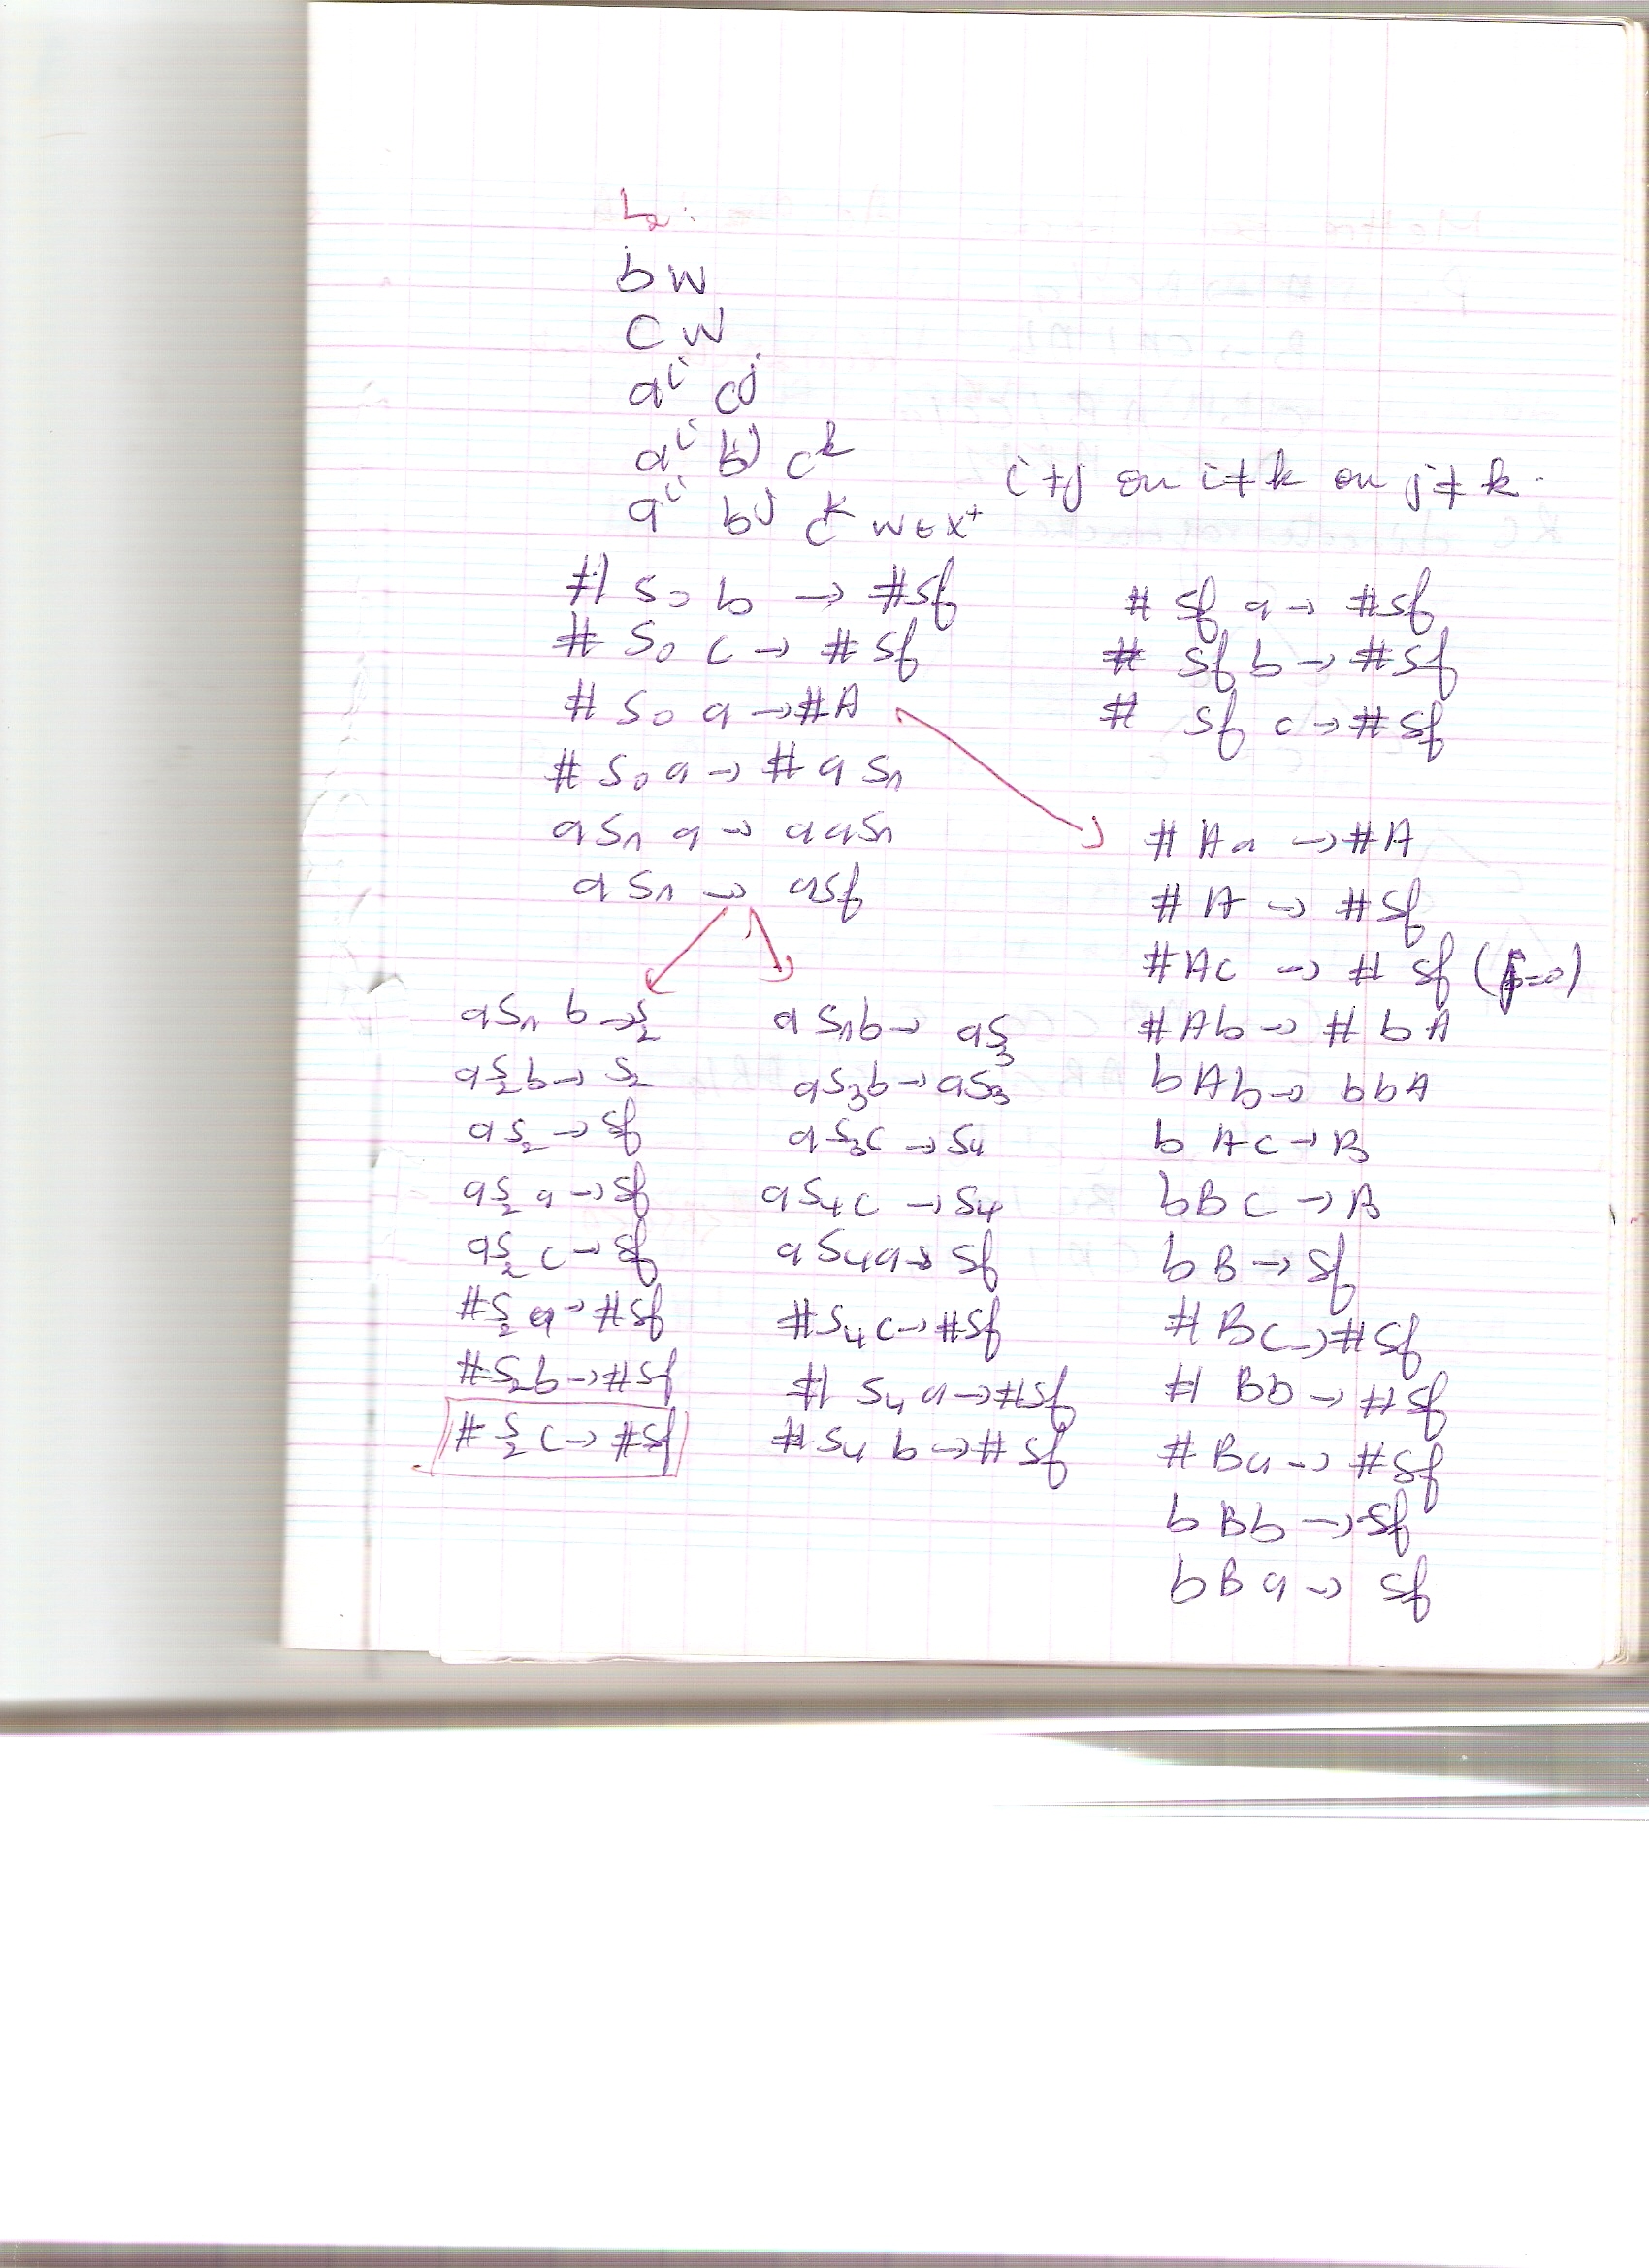 L2:
bw
cw
a^i c^j
a^i b^j c^k
a^i b^j c^k w ∈ X^+ i≠j ou i≠k ou j≠k.
# S0 b → #Sf
# S0 c → #Sf
# S0 a → #A
# S0 a → # a S1
a S1 a → a a S1
a S1 → a Sf
a S1 b → S2
a S2 b → S2
a S2 → Sf
a S2 a → Sf
a S2 c → Sf
# S2 a → #Sf
# S2 b → #Sf
# S2 c → #Sf
a S1 b → a S3
a S3 b → a S3
a S3 c → S4
a S4 c → S4
a S4 a → Sf
# S4 c → #Sf
# S4 a → #Sf
# S4 b → # Sf
# Sf a → #Sf
# Sf b → #Sf
# Sf c → #Sf
# A a → #A
# A → #Sf
# A c → # Sf (j=0)
# A b → # b A
b A b → b b A
b A c → B
b B c → B
b B → Sf
# B c → #Sf
# B b → #Sf
# B a → #Sf
b B b → Sf
b B a → Sf